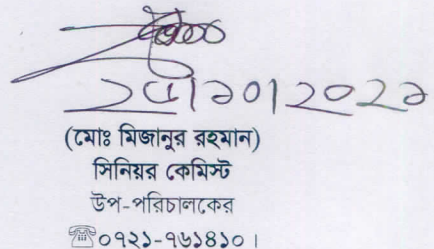 ১০।২০২১
(মোঃ মিজানুর রহমান)
সিনিয়র কেমিস্ট
উপ-পরিচালকের
☎০৭২১-৭৬১৪১০।